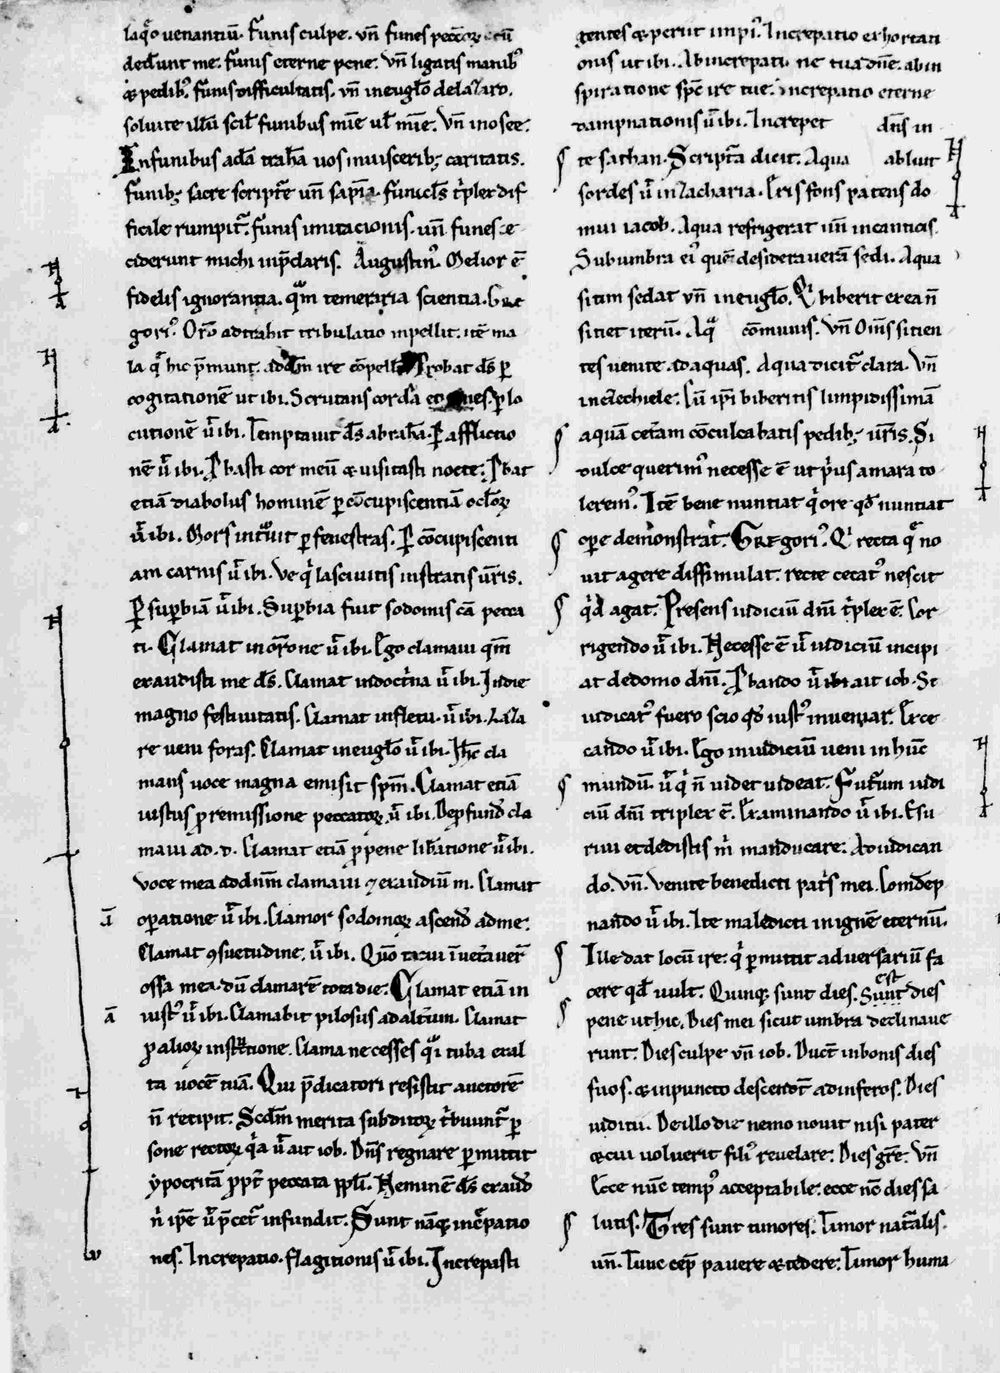 laq̄o uenantiū. Funis culpe. vn̄ funes peccōꝝ
ded̄unt me. funis eterne pene. Vn̄ ligatis manibꝰ
⁊ pedibꝰ. funis difficultatis. vn̄ in eugl̄o de lazaro.
soluite illū scil̄ funibus mīe ul̄ mīe. Vn̄ in osee.
In funibus adā trahā uos in uisceribꝫ caritatis.
funibꝫ sacre scriptē̄ vn̄ sapīa. funicl̄s t̄plex dif
ficile rumpit̄. funis imitacionis. un̄ funes ce
ciderunt michi in p̄claris. Augustinꝰ. Melior ē
fidelis ignorantia. qm̄ temeraria scientia. Gre
goriꝰ. Or̄o adtrahit tribulatio inpellit. itē ma
la q̄ hic p̄munt. ad dm̄ ire cōpell Probat ds̄ ꝑ
cogitationē ut ibi. Scrutans corda et ꝑ lo
cutionē ū ibi. Temptauit ds̄ abrahā. Ꝑ afflictio
nē ū ibi. Pbasti cor meū ⁊ uisitasti nocte. Pbat
etiā diabolus hominē ꝑ cōcupiscentiā ocl̄oꝝ
ū ibi. Mors int̄uit ꝑ fenestras. Ꝑ cōcupiscenti
am carnis ū ibi. Ve q̄ lasciuitis in stratis ur̄is.
Ꝑ suꝑbiā ū ibi. Suꝑbia fuit sodomis cā pecca
ti. Clamat in or̄one ū ibi. Ego clamaui qm̄
exaudisti me ds̄. Clamat in doctͥna ū ibi. In die
magno festiuitatis. Clamat in fletu. ū ibi. Laza
re ueni foras. Clamat in eugl̄o ū ibi. Ihc̄ cla
mans uoce magna emisit spm̄. Clamat etiā
iustus ꝓ remissione peccatoꝝ ū ibi. De ꝓfund̄ cla
maui ad. t. Clamat etiā ꝓ pene lib̄atione ū ibi.
Voce mea ad dnm̄ clamaui ⁊ exaudiuī m. Clamat
oꝑatione ū ibi. Clamor sodomoꝝ ascend̄ ad me.
Clamat ꝯsuetudine. ū ibi. Quō tacui īueťauer̄
ossa mea. dū clamarē tota die. Clamat etiā in
iustꝰ ū ibi. Clamabit pilosus ad alťum. Clamat
ꝓ alioꝝ inst̄ctione. Clama ne cesses q̄i tuba exal
ta uocē tuā. Qui p̄dicatori resistit auctorē
n̄ recipit. Scdm̄ merita subditoꝝ t̄buunt̄ ꝑ
sone rectoꝝ q̄a ū ait iob. Dn̄s regnare ꝑmittit
ypocritā ꝓpt̄ peccata ppl̄i. Neminē ds̄ exaud̄
n̄ ip̄e ū p̄cet̄ infundit. Sunt nāq̄ inc̄patio
nes. Increpatio. flagitionis ū ibi. Increpasti
gentes ⁊ periit impiꝰ. Increpatio exhortati
onis ut ibi. Ab increpati ne tua dn̄e. ab in
spiratione spc̄ ire tue. Increpatio eterne
dampnationis ū ibi. Increpet dn̄s in
te sathan. Scriptā dicit. Aqua abluit
sordes ū in zacharia. Eris fons patens do
mui iacob. Aqua refrigerat un̄ in canticis.
Sub umbra eiꝰ quē desideraueram sedi. Aqua
sitim sedat vn̄ in eugl̄o. Qi biberit ex ea n̄
sitiet iterū. Aq̄ cōmunis. Vn̄ Oīns sitien
tes uenite ad aquas. Aqua dicit̄ clara. Vn̄
in ezechiele. Cū ip̄i biberitis limpidissimā
aquā cetam cōculcabatis pedibꝫ ur̄is. Si
dulce querimꝰ necesse ē ut p̄us amara to
leremꝰ. Itē bene nuntiat q̄ ore qd̄ nuntiat
oꝑe demōnstrat. Gregoriꝰ. Qi recta q̄ no
uit agere dissimulat. recte cecatꝰ nescit
q̄d agat. Presens iudiciū dnī t̄plex ē. Cor
rigendo ū ibi. Necesse ē ū iudiciū incipi
at de domo dnī. Pbando ū ibi ait iob. Si
iudicatꝰ fuero scio qd̄ iustꝰ inueniar. Exce
cando ū ibi. Ego in iudiciū ueni in hūc
mundū. ū q̄ n̄ uidet uideat. Futurum iudi
ciū dnī triplex ē. Examinando ū ibi. Esu
riui et dedistis m̄ manducare. Adiudican
do. vn̄. Venite benedicti patͥs mei. Condēp
nando ū ibi. Ite maledicti in ignē eternū.
Ille dat locū ire. q̄ ꝑmittit aduersariū fa
cere qd̄ uult. Quinq̄ sunt dies. Sunt dies
est
pene ut hic. Dies mei sicut umbra declinaue
runt. Dies culpe vn̄ iob. Duct̄ in bonis dies
suos. ⁊ in puncto descendt̄ ad inferos. Dies
iuditii. De illo die nemo nouit nisi pater
⁊ cui uoluerit filiꝰ reuelare. Dies gr̄e. Vn̄
Ecce nūc tempꝰ acceptabile. ecce nc̄ dies sa
lutis. Tres sunt timores. Timor nat̄alis.
un̄. Tunc cep̄ pauere ⁊ tedere. Timor huma